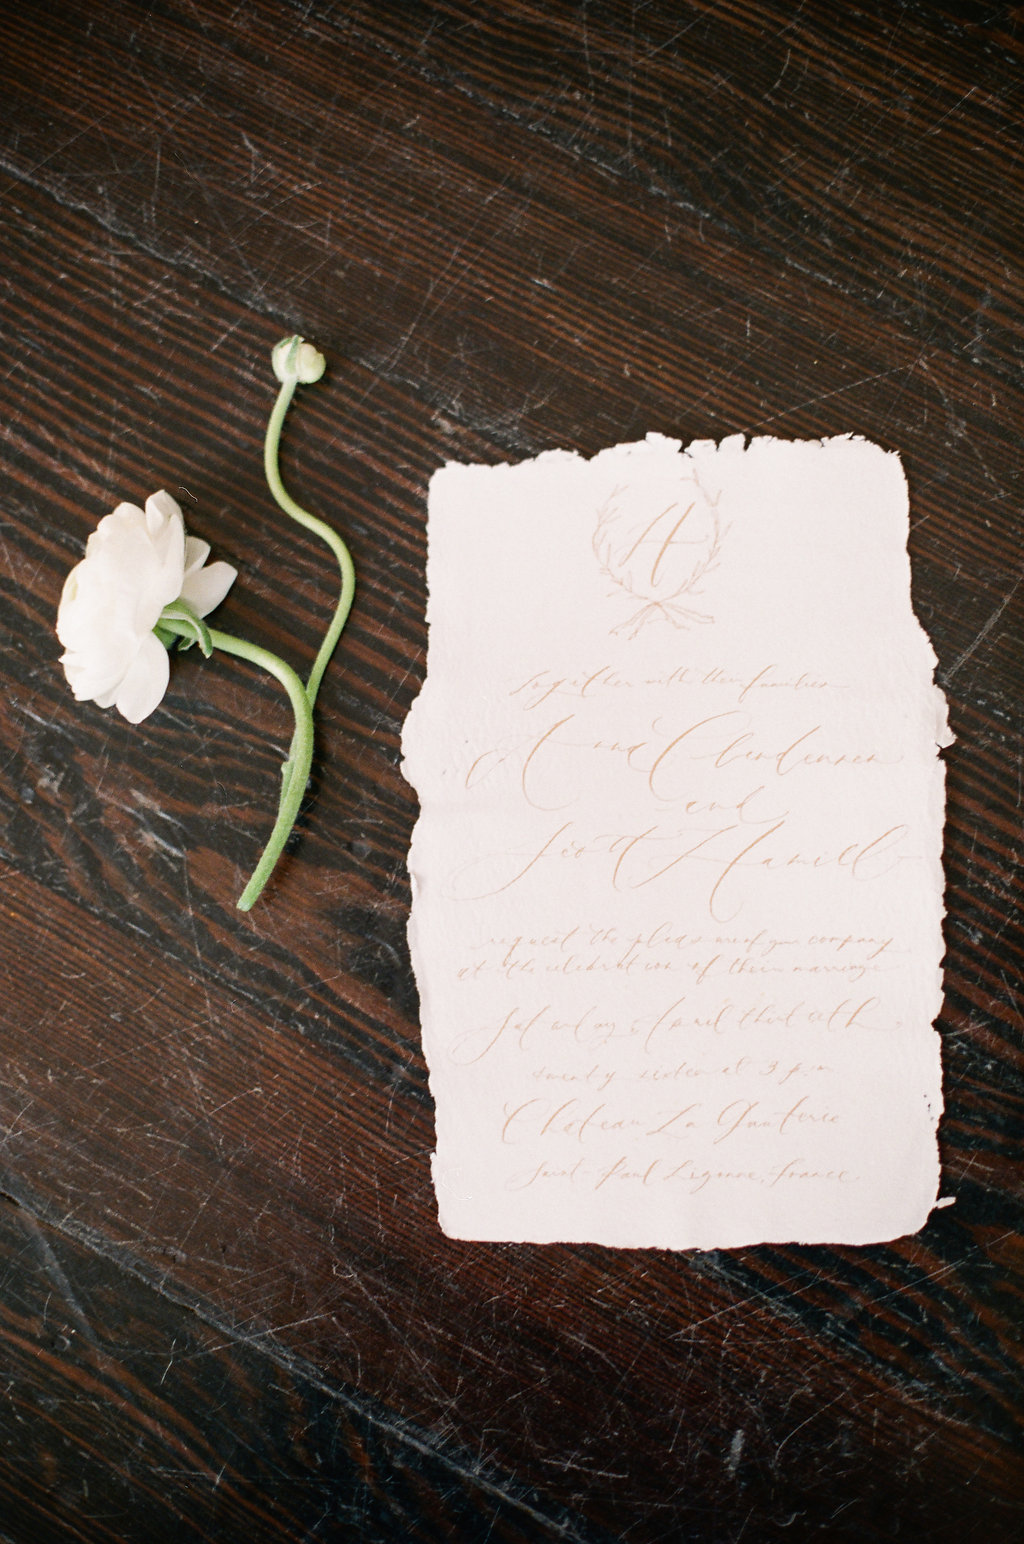 H
together with their families
Anna Clendennen
and
Scott Hamill
request the pleasure of your company
at the celebration of their marriage
Saturday, April thirtieth
twenty sixteen at 3 p.m
Chateau La Gauterie
Saint Paul Lizonne, France